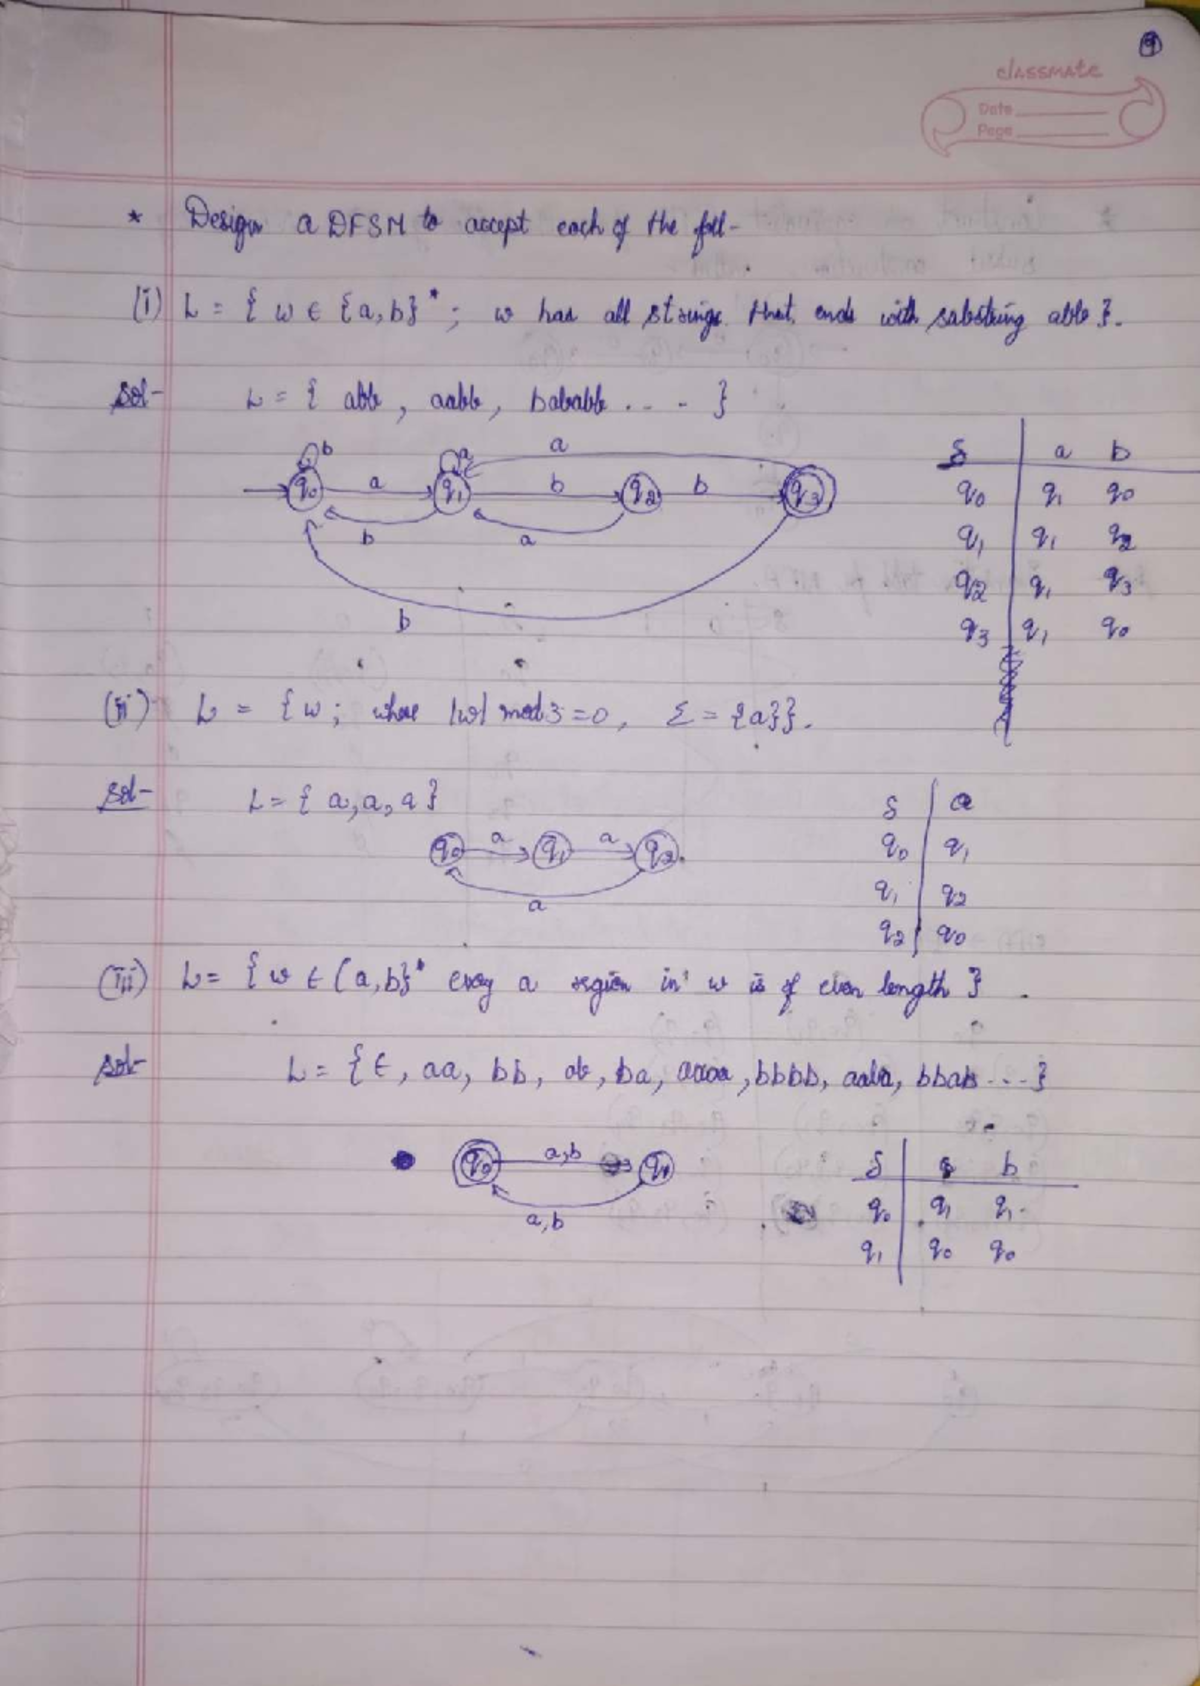 9
classmate
Date
Page
* Design a DFSM to accept each of the foll-
(i) L = { w ∈ {a,b}*; w has all strings that ends with substring abb }.
Sol- L = { abb, aabb, bababb .... }
b a a
q0 a q1 b q2 b q3
b a
b
δ a b
q0 q1 q0
q1 q1 q2
q2 q1 q3
q3 q1 q0
(ii) L = { w; where |w| mod 3 = 0, Σ = {a}}.
Sol- L = { a, a, a }
q0 a q1 a q2
a
δ a
q0 q1
q1 q2
q2 q0
(iii) L = { w ∈ (a,b}* every a region in w is of even length }
Sol- L = { ∈, aa, bb, ab, ba, aaaa, bbbb, aaba, bbab ... }
q0 a,b q1
a,b
δ b
q0 q1 q1
q1 q0 q0